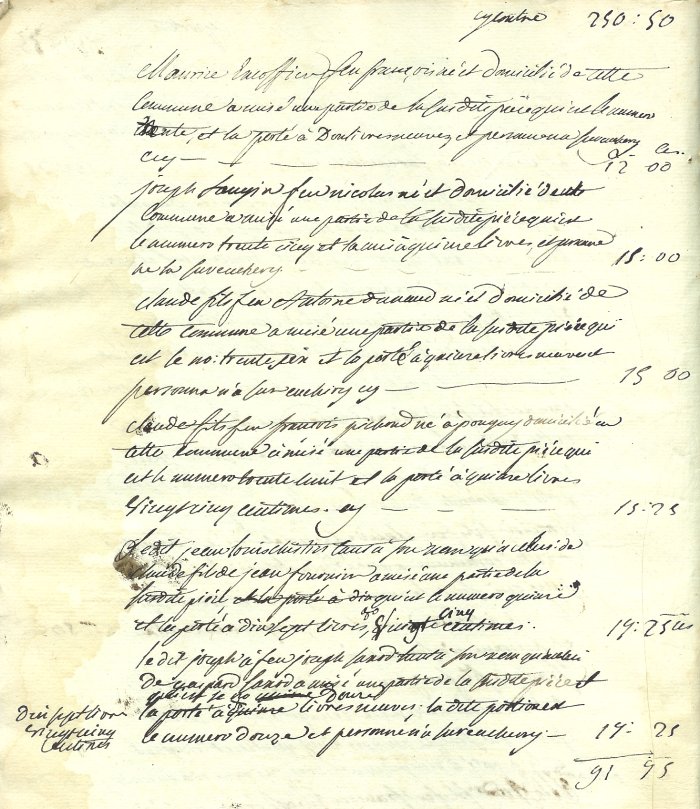 cy contre 250:50
Maurice Encoffier feu françois né et domicilié de cette
Commune a misé une partie de la susdite pièce qui est le numero
trente, et la porté à Dou livres neuves, et personne na surenchery
cy — 12 00
joseph Saugin feu nicolas né et domicilié de cette
Commune a misé une partie de la susdite pièce qui est
le numero trente cinq et la mis à quinze livres, et personne
ne la surenchery 15:00
claude fils feu Antoine dunand né et domicilié de
cette commune a misé une partie de la susdite pièce qui
est le no: trente six et la porté à quinze livres neuves et
personne n'a surenchery cy — 15 00
claude fils feu françois pichond né à pougny domicilié en
cette commune a misé une partie de la susdite pièce qui
est le numero trente huit et la porté à quinze livres
Vingt cinq centimes. cy — 15-25
Ledit jean louis tant à son nom qu'a celui de
claude fils de jean fournier a misé une partie de la
susdite pièce et la porté à dix qui est le numero quinze
et la porté a dix sept livres, Vingt cinq centimes. 17:25
Le dit joseph à feu joseph tant à son nom qu'a celui
De gaspard a misé une partie de la susdite pièce et
la porté à quinze livres neuves: la dite portion est
Dix sept livres
Vingt cinq
centimes
le numero Douze et personne n'a surenchery — 17: 25
91 75